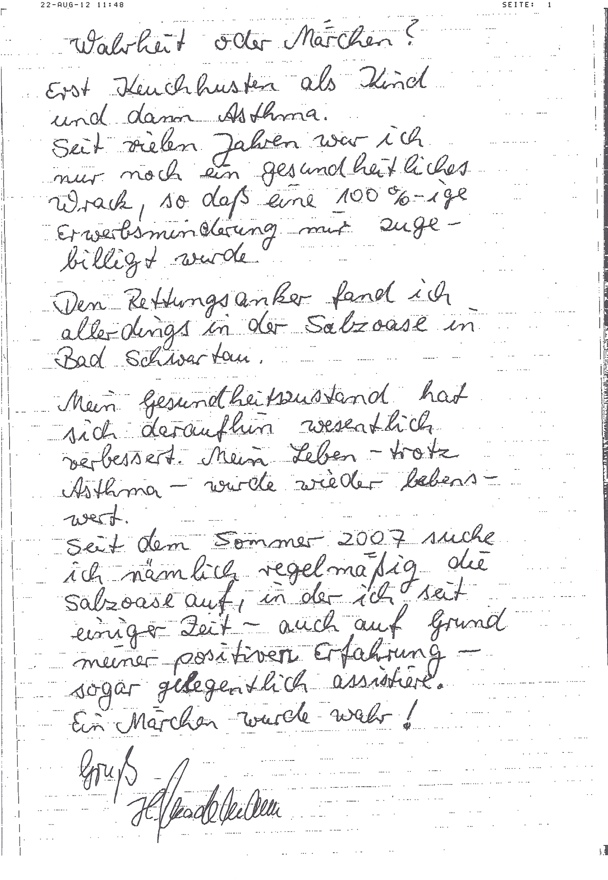 22-AUG-12 11:48 SEITE: 1
Wahrheit oder Märchen?
Erst Keuchhusten als Kind
und dann Asthma.
Seit vielen Jahren war ich
nur noch ein gesundheitliches
Wrack, so daß eine 100%-ige
Erwerbsminderung mir zuge-
billigt wurde
Den Rettungsanker fand ich
allerdings in der Salzoase in
Bad Schwartau.
Mein Gesundheitszustand hat
sich daraufhin wesentlich
verbessert. Mein Leben - trotz
Asthma - wurde wieder lebens-
wert.
Seit dem Sommer 2007 suche
ich nämlich regelmäßig die
Salzoase auf, in der ich seit
einiger Zeit - auch auf Grund
meiner positiven Erfahrung -
sogar gelegentlich assistiere.
Ein Märchen wurde wahr!
Gruß